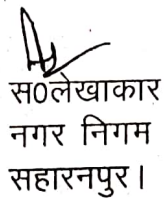 स0लेखाकार
नगर निगम
सहारनपुर।